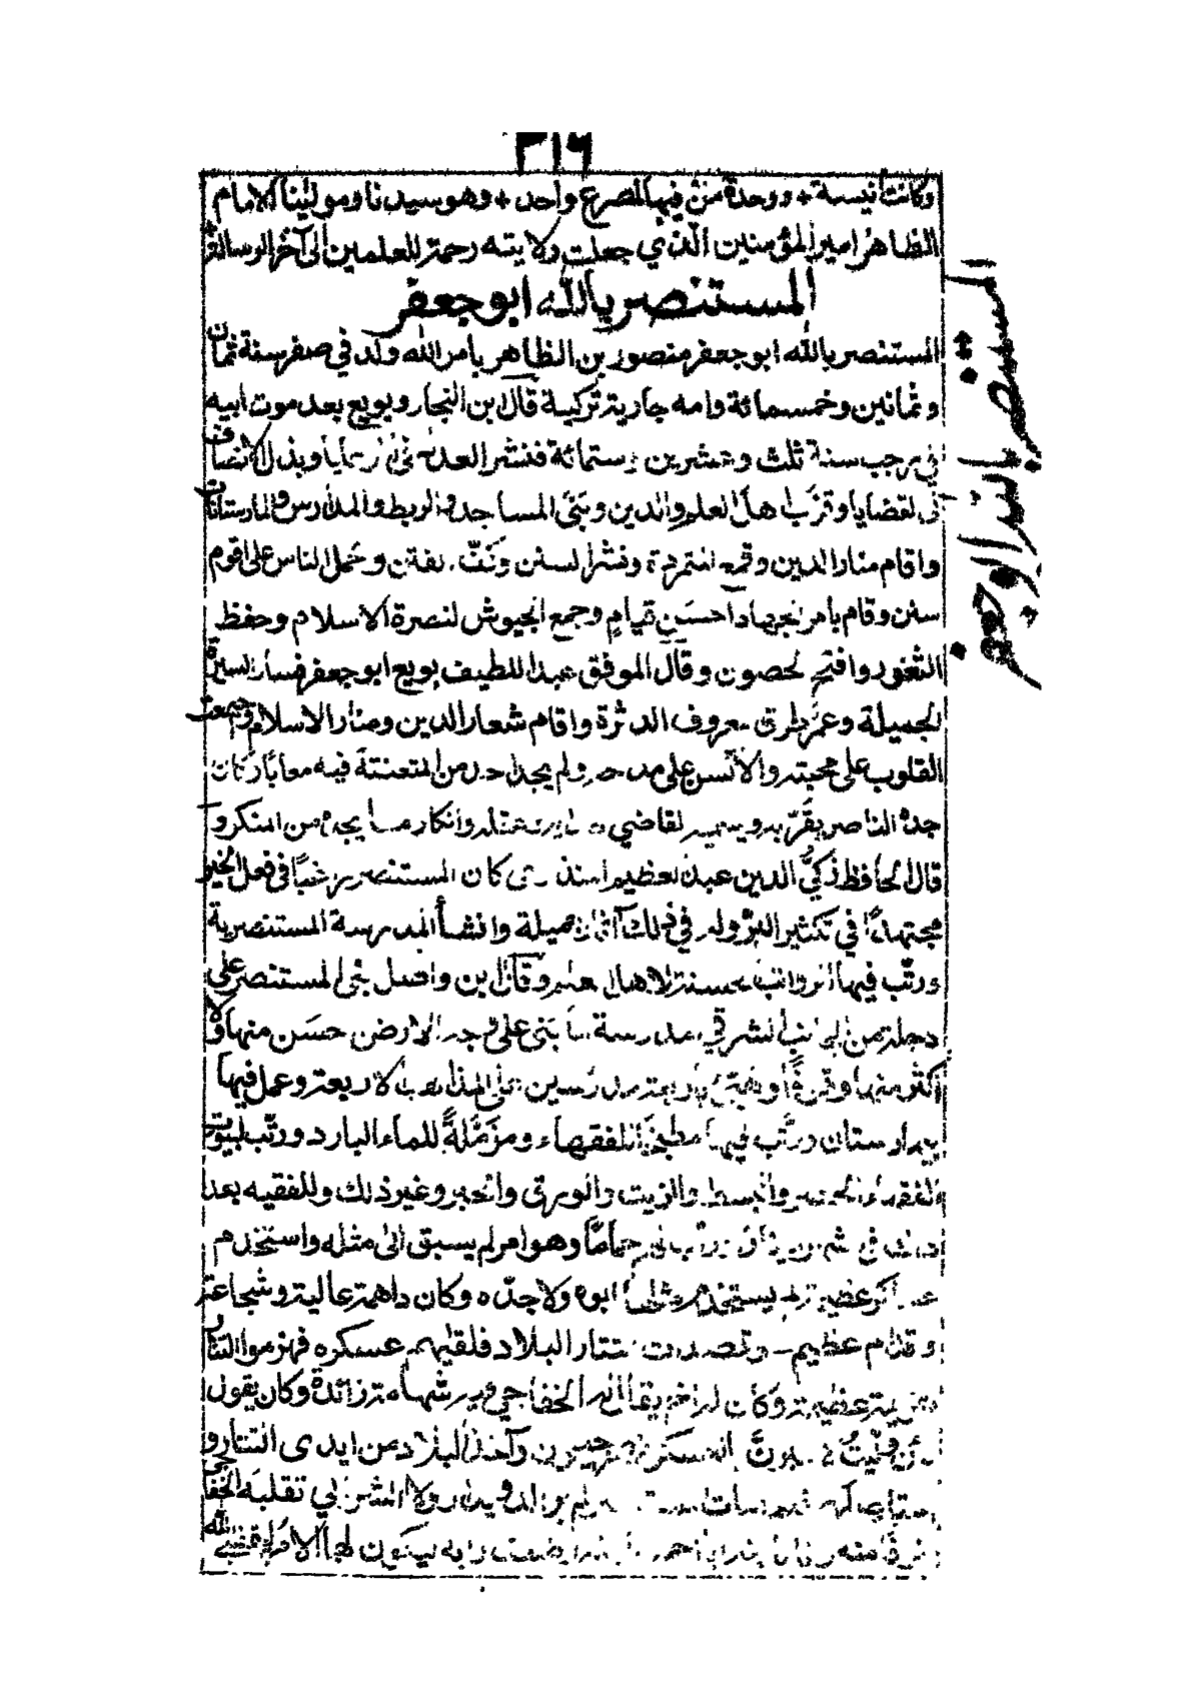 ٣١٦
وكانت انيسة + ووحدة منن فيها لمصرع واحد + وهو سيدنا ومولينا الامام
الظاهر امير المؤمنين الذي جعلت ولايته رحمة للعلمين الى آخر الرسالة
المستنصر بالله ابو جعفر
المستنصر بالله ابو جعفر منصور بن الظاهر بامر الله ولد في صفر سنة ثمان
وثمانين وخمسمائة وامه جارية تركية قال ابن النجار وبويع بعد موت ابيه
في رجب سنة ثلث وعشرين وستمائة فنشر العدل في الرعايا وبذل الانصاف
في القضايا وقرّب اهل العلم والدين وبنى المساجد والربط والمدارس والمارستانات
واقام منار الدين وقمع المتمردة ونشر السنن وكفّ الفتن وحمل الناس على اقوم
سنن وقام بامر الجهاد احسن قيام وجمع الجيوش لنصرة الاسلام وحفظ
الثغور وافتتح الحصون وقال الموفق عبد اللطيف بويع ابو جعفر فسار السيرة
الجميلة وعمر طرق المعروف الدثرة واقام شعار الدين ومنار الاسلام وجمعت
القلوب على محبته والالسن على مدحه ولم يجد احد من المتعنتة فيه معابا وكان
جده الناصر يقرّبه ويسميه القاضي لهديه وعقله وانكار ما يجده من المنكر و
قال الحافظ زكيّ الدين عبد العظيم المنذري كان المستنصر راغبًا في فعل الخير
مجتهدًا في تكثير البر وله في ذلك آثار جميلة وانشأ المدرسة المستنصرية
ورتّب فيها الرواتب الحسنة لاهل العلم وقال ابن واصل بنى المستنصر على
دجلة من الجانب الشرقي مدرسة ما بنى على وجه الارض احسن منها ولا
اكثر منها وقوفًا وهي باربعة مدرّسين على المذاهب الاربعة وعمل فيها
بيمارستان ورتّب فيها مطبخًا للفقهاء ومزمّلةً للماء البارد ورتّب لبيوت
الفقهاء الحصر والبسط والزيت والورق والحبر وغير ذلك وللفقيه بعد
ذلك في الشهر دينار ورتّب لهم حمامًا وهو امر لم يسبق الى مثله واستخدم
عساكر عظيمة لم يستخدم مثلها ابوه ولا جدّه وكان ذا همة عالية وشجاعة
واقدام عظيم وقصدت التتار البلاد فلقيهم عسكره فهزموا التتار
هزيمة عظيمة وكان له اخ يقال له الخفاجي فيه شهامة زائدة وكان يقول
لئن وليتُ لاعبرنّ بالعسكر نهر جيحون وآخذ البلاد من ايدي التتار و
استاصلهم فلما مات المستنصر لم ير الدويدار ولا الشرابي تقليد الخفاجي
خوفا منه واقاما ابنه ابا احمد للينه وضعف رايه ليكون لهما الامر ليقضي الله
المستنصر بالله ابو جعفر